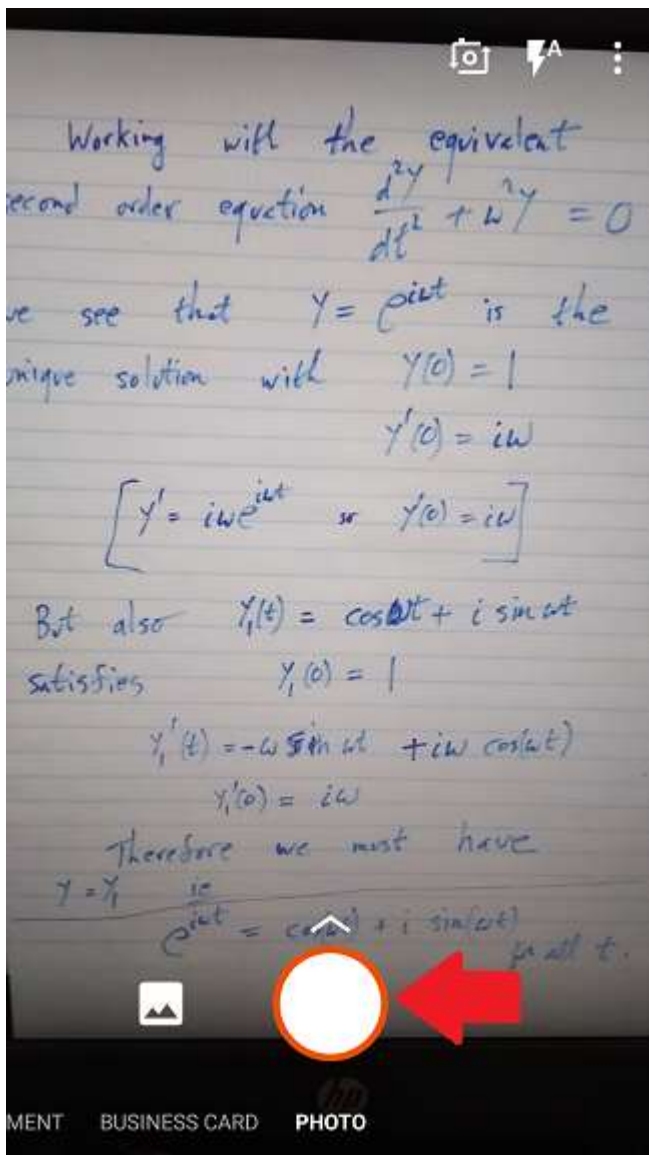 A
Working with the equivalent
econd order equation d²y/dt² + ω²y = 0
ve see that y = e^{iωt} is the
nique solution with y(0) = 1
y'(0) = iω
[y' = iωe^{iωt} so y'(0) = iω]
But also y₁(t) = cos ωt + i sin ωt
satisfies y₁(0) = 1
y₁'(t) = -ω sin ωt + iω cos(ωt)
y₁'(0) = iω
Therefore we must have
y = y₁ ie
e^{iωt} = cos(ωt) + i sin(ωt)
for all t.
hp
MENT BUSINESS CARD PHOTO